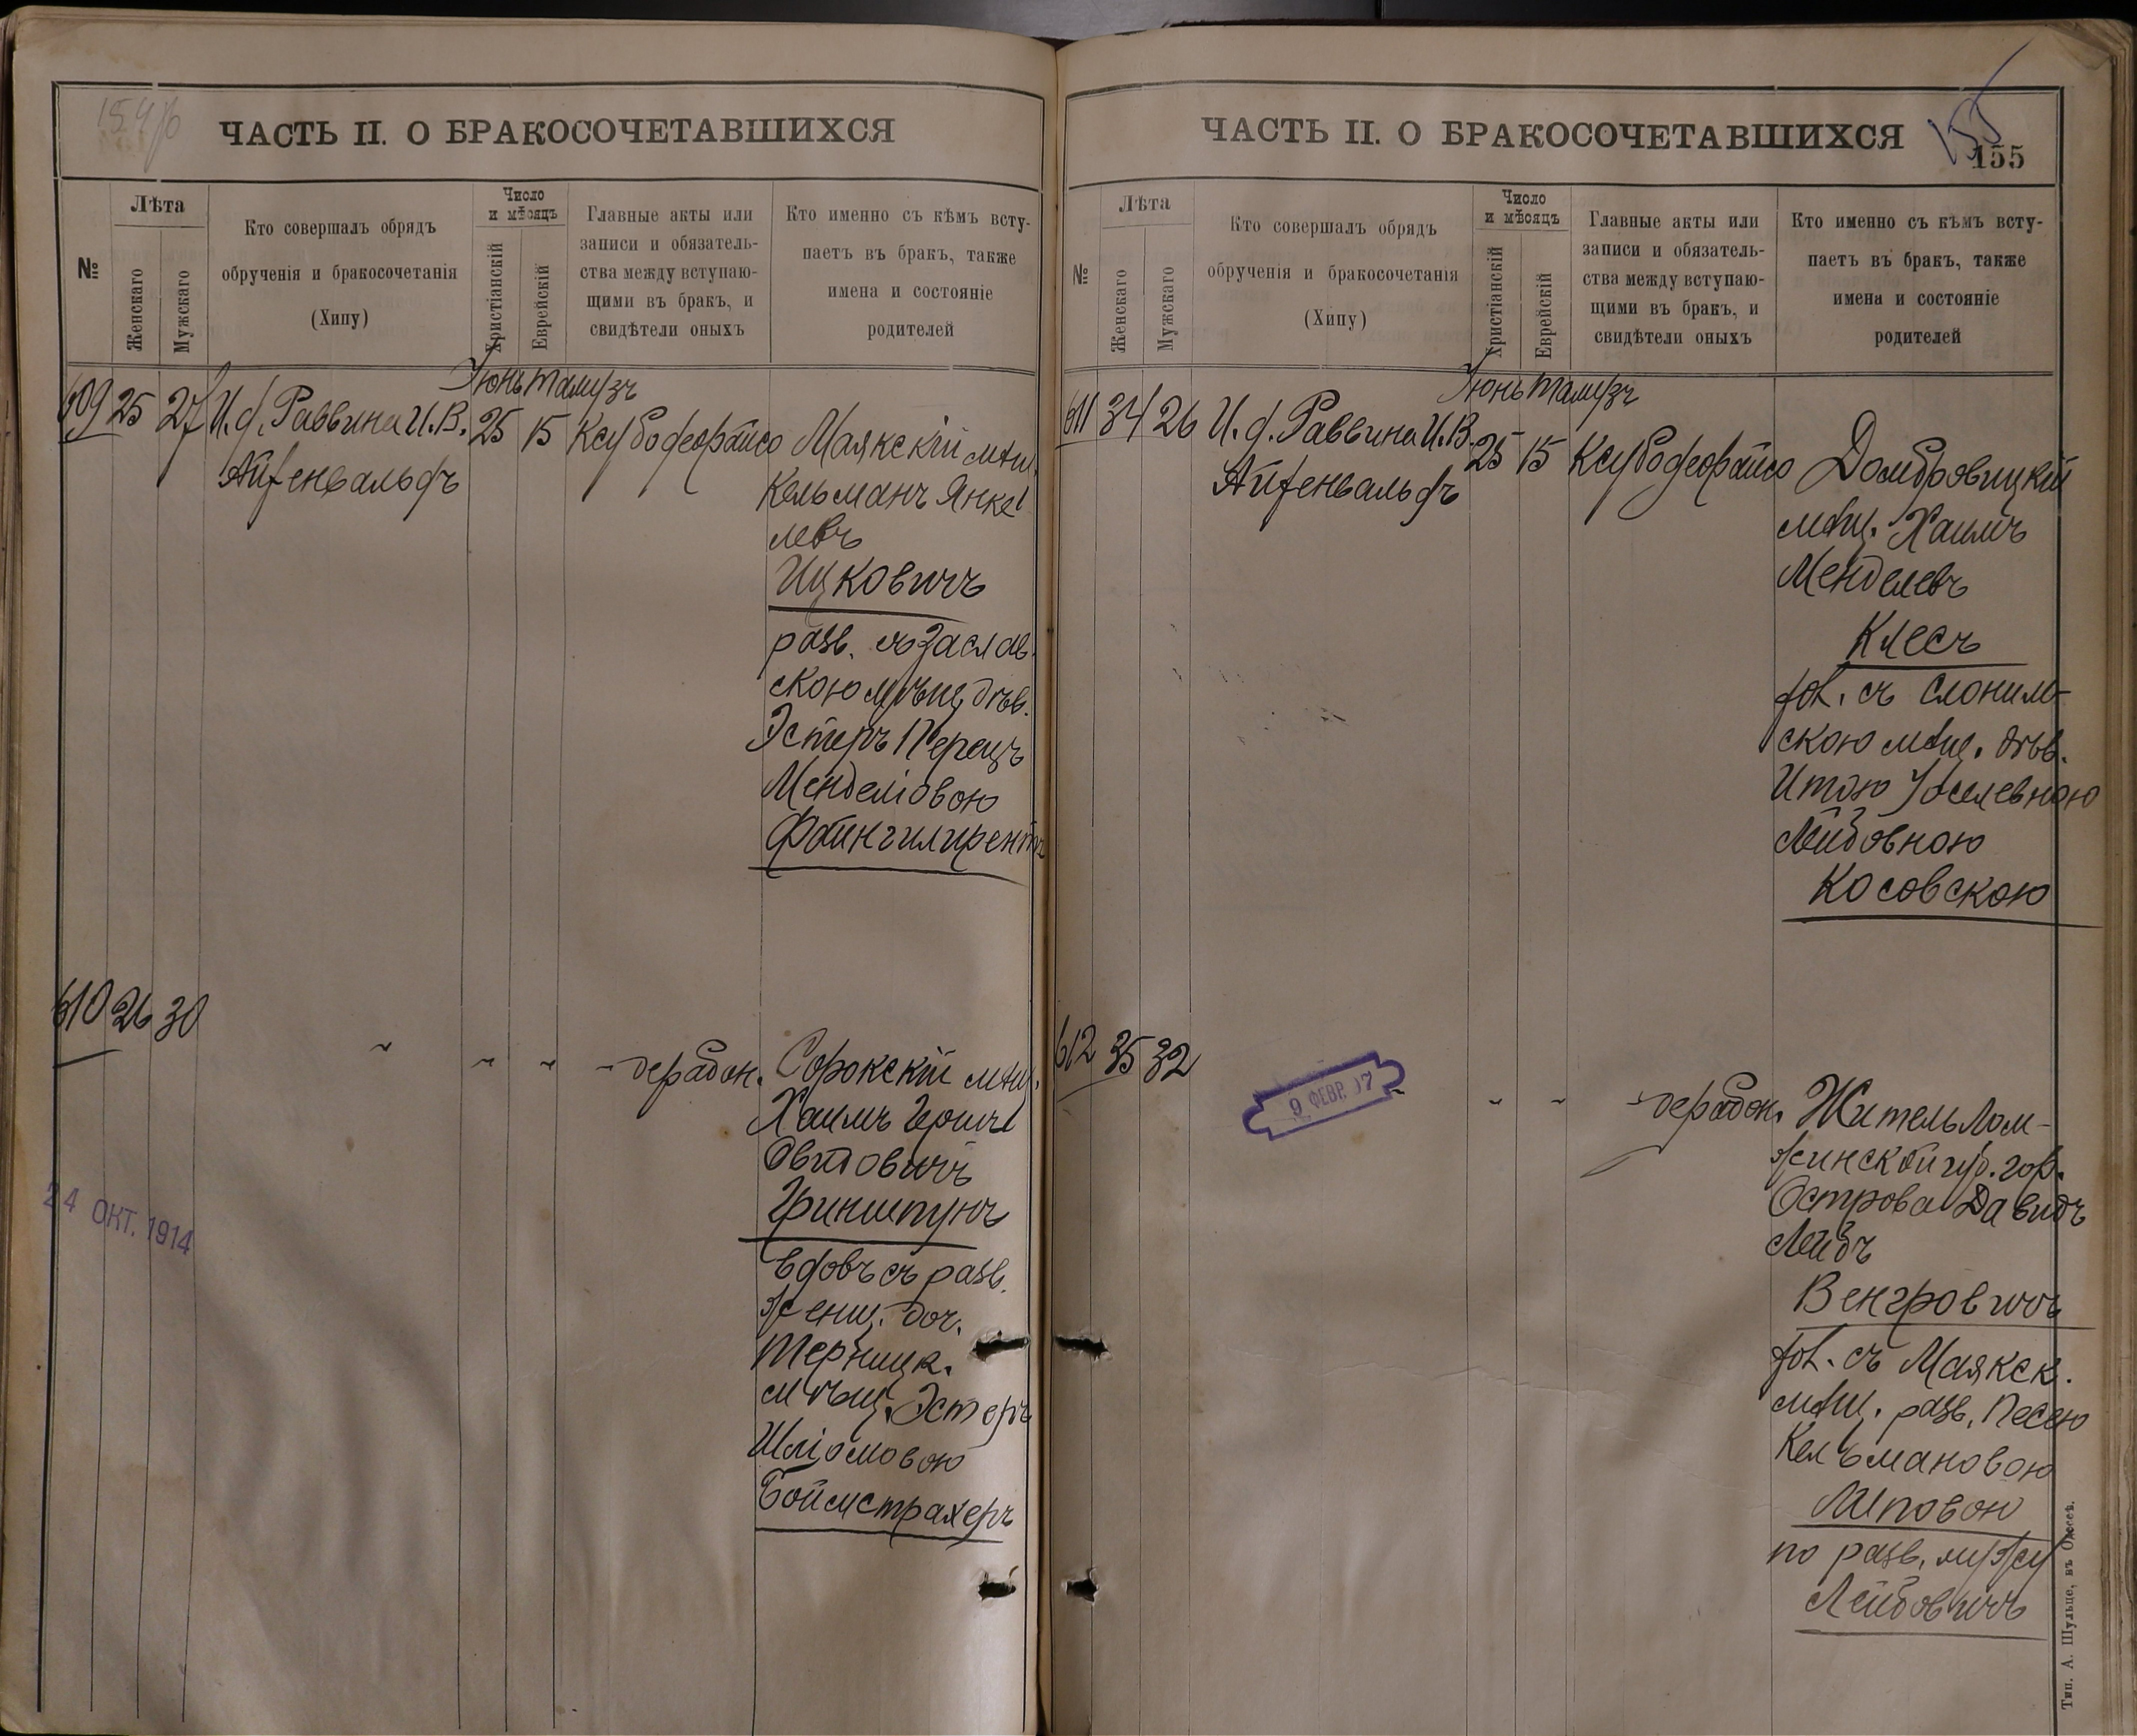 154об
ЧАСТЬ II. О БРАКОСОЧЕТАВШИХСЯ
№
Лѣта
Женскаго
Мужскаго
Кто совершалъ обрядъ
обрученія и бракосочетанія
(Хипу)
Число
и мѣсяцъ
Христіанскій
Еврейскій
Главные акты или
записи и обязатель-
ства между вступаю-
щими въ бракъ, и
свидѣтели оныхъ
Кто именно съ кѣмъ всту-
паетъ въ бракъ, также
имена и состояніе
родителей
Іюнь Тамузъ
609 25 27 И.д. Раввина И.В. 25 15 Ксубо деорайсо
Айзенвальдъ
Маякскій мѣщ.
Кельманъ Янке
левъ
Ицковичъ
разв. съ Заслав
скою мѣщ дѣв.
Эстеръ Перецъ
Менделіовою
Файнгилирентъ
610 26 30
" " " - дерабон.
Сорокскій мѣщ.
Хаимъ Герш
Овидовичъ
Гринштунъ
вдовъ съ разв.
женщ. доч.
мѣщ. Эстеръ
Шліомовою
Боймстрахеръ
24 ОКТ. 1914
ЧАСТЬ II. О БРАКОСОЧЕТАВШИХСЯ
155
155
№
Лѣта
Женскаго
Мужскаго
Кто совершалъ обрядъ
обрученія и бракосочетанія
(Хипу)
Число
и мѣсяцъ
Христіанскій
Еврейскій
Главные акты или
записи и обязатель-
ства между вступаю-
щими въ бракъ, и
свидѣтели оныхъ
Кто именно съ кѣмъ всту-
паетъ въ бракъ, также
имена и состояніе
родителей
Іюнь Тамузъ
611 34 26 И.д. Раввина И.В. 25 15 Ксубо деорайсо
Айзенвальдъ
Домбровицкій
мѣщ. Хаимъ
Менделевъ
Клесъ
хол. съ Слоним-
скою мѣщ. дѣв.
Итою Іоселевною
Лейбовною
Косовскою
612 35 32
" " " - дерабон.
9 ФЕВР. 17
Житель Лом-
жинской губ. гор.
Острова Давидъ
Лейбъ
Венгровичъ
хол. съ Маякск.
мѣщ. разв. Песею
Кельмановою
Липовою
по разв. мужу
Лейбовичъ
Тип. А. Шульце, въ Одессѣ.